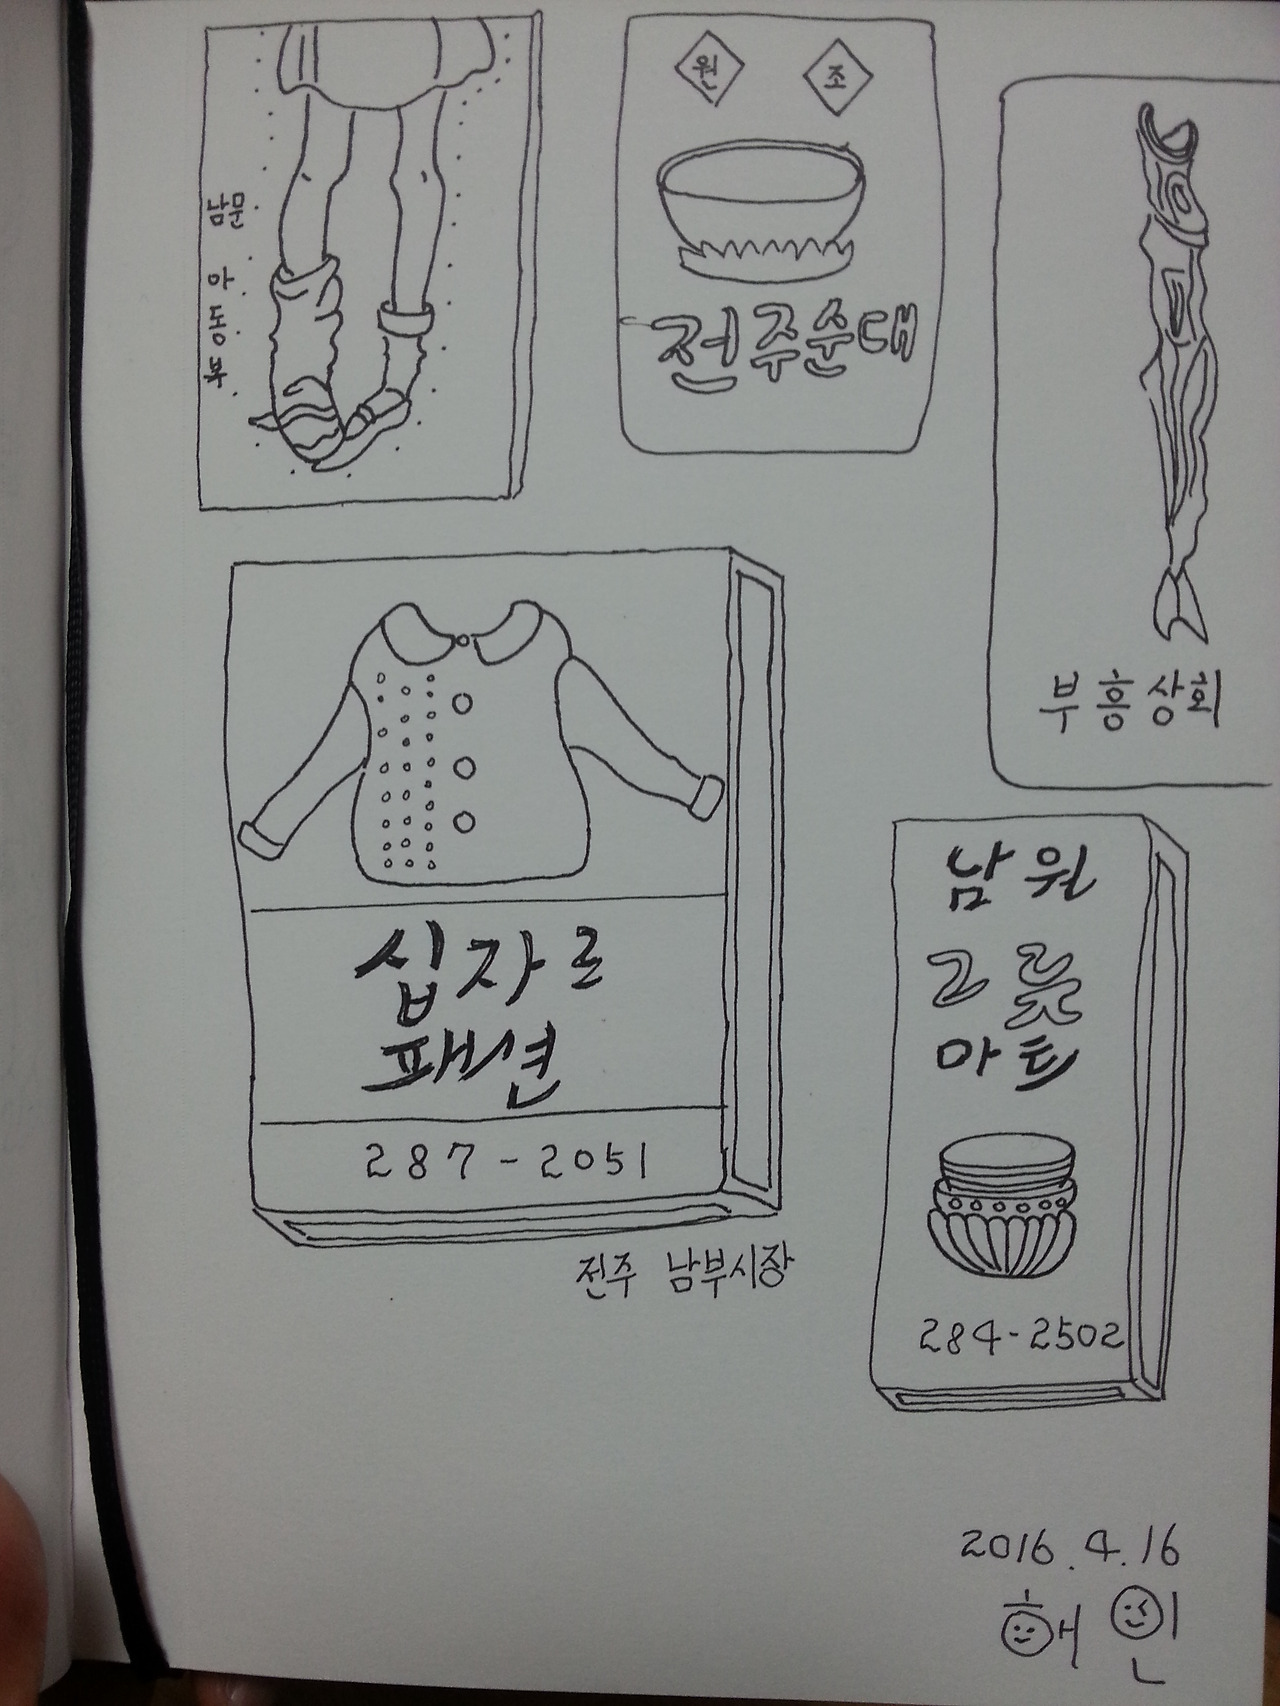 남문
아
동
복
원 조
전주순대
부흥상회
십자로
패션
287-2051
전주 남부시장
남원
그릇
마트
284-2502
2016.4.16
해인